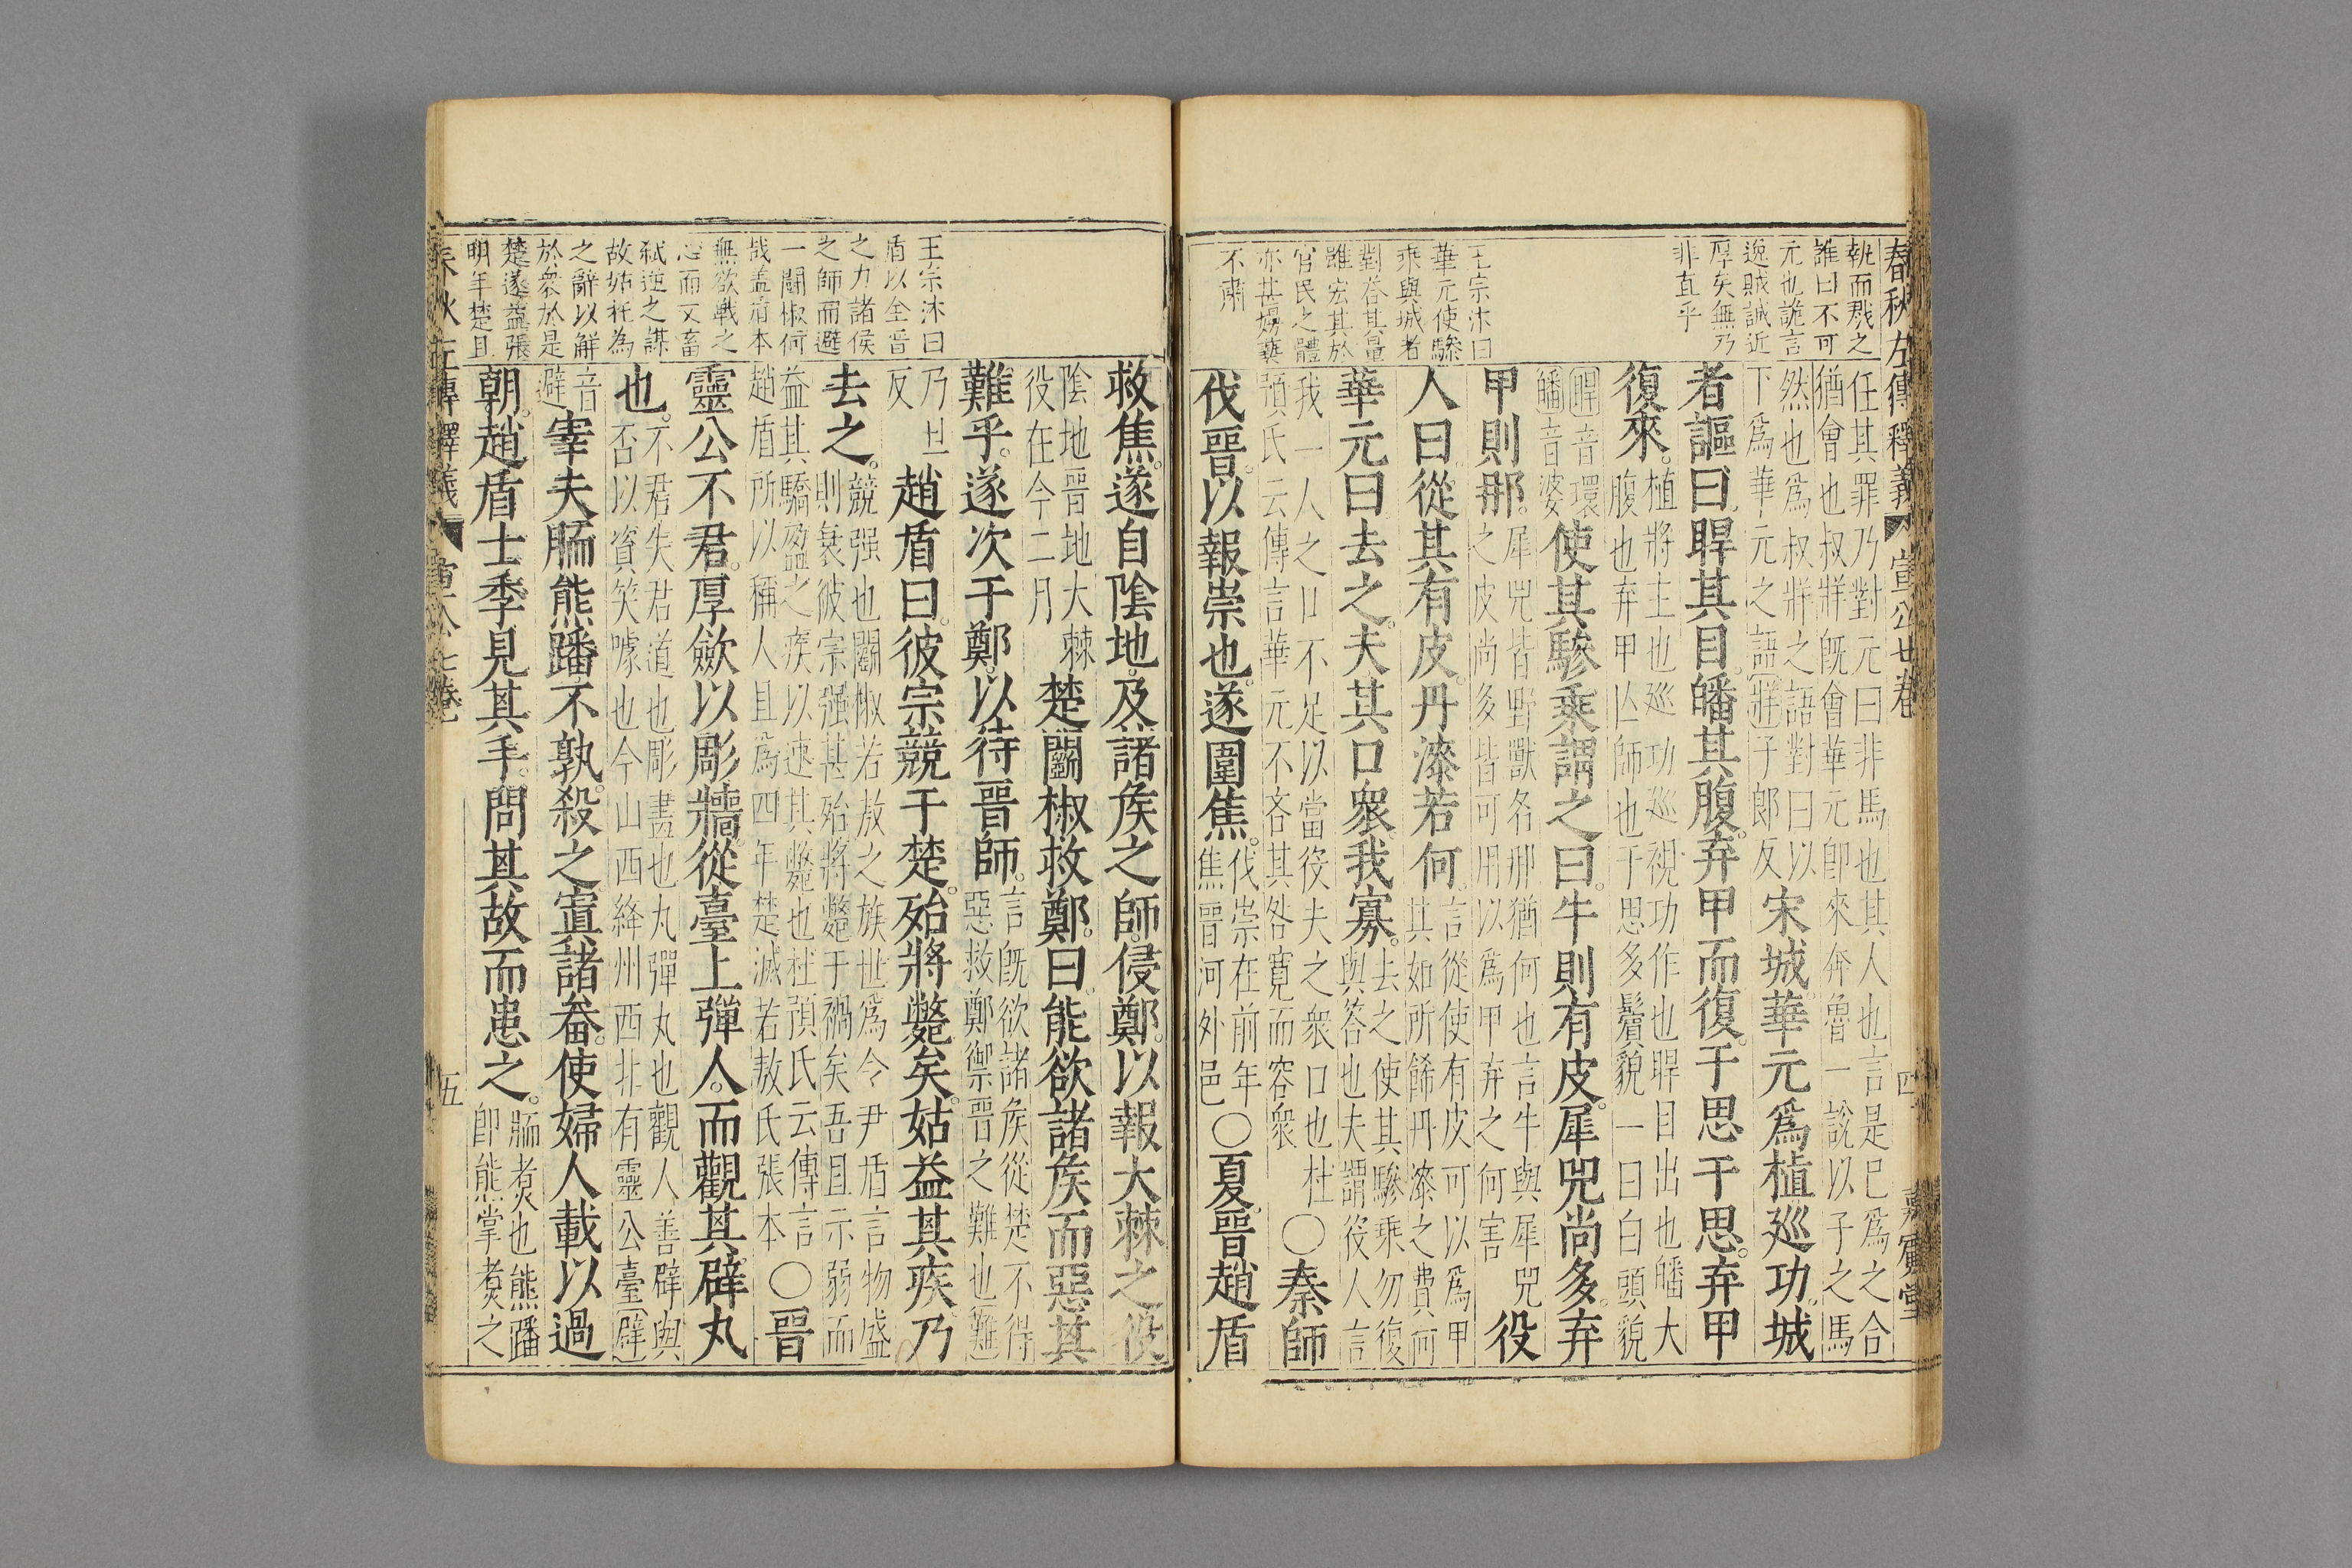 春秋左傳釋義 宣公七卷 四 嘉賓堂
執而戮之
誰曰不可
元也詭言
逸賊誠近
厚矣無乃
非直乎
王宗沐曰
華元使驂
乘與城者
對荅其量
雖宏其於
官民之體
亦甚媟䙝
不肅
任其罪乃對元曰非馬也其人也言是已爲之合
猶會也叔牂既會華元卽來奔魯一說以子之馬
然也爲叔牂之語對曰以
下爲華元之語牂子郎反
宋城華元爲植巡功城
者謳曰睅其目皤其腹弃甲而復于思于思弃甲
復來
植將主也巡功巡視功作也睅目出也皤大
腹也弃甲亾師也于思多鬚貌一曰白頭貌
睅音環
皤音婆
使其驂乘謂之曰牛則有皮犀兕尚多弃
甲則那
犀兕皆野獸名那猶何也言牛與犀兕
之皮尚多皆可用以爲甲弃之何害
役
人曰從其有皮丹漆若何
言從使有皮可以爲甲
其如所餙丹漆之費何
華元曰去之夫其口衆我寡
去之使其驂乘勿復
與答也夫謂役人言
我一人之口不足以當役夫之衆口也杜
預氏云傳言華元不吝其咎寬而容衆
○秦師
伐晉以報崇也遂圍焦
伐崇在前年
焦晉河外邑
○夏晉趙盾
救焦遂自陰地及諸矦之師侵鄭以報大棘之役
陰地晉地大棘
役在今二月
楚鬭椒救鄭曰能欲諸矦而惡其
難乎遂次于鄭以待晉師
言既欲諸矦從楚不得
惡救鄭禦晉之難也難
乃旦
反
趙盾曰彼宗競于楚殆將斃矣姑益其疾乃
去之
競强也鬭椒若敖之族世爲令尹盾言物盛
則衰彼宗强甚殆將斃于禍矣吾且示弱而
益其驕盈之疾以速其斃也杜預氏云傳言
趙盾所以稱人且爲四年楚滅若敖氏張本
○晉
靈公不君厚斂以彫牆從臺上彈人而觀其辟丸
也
不君失君道也彫畫也丸彈丸也觀人善辟與
否以資笑噱也今山西絳州西北有靈公臺辟
音
避
宰夫胹熊蹯不孰殺之寘諸畚使婦人載以過
朝趙盾士季見其手問其故而患之
胹煮也熊蹯
卽熊掌煮之
王宗沐曰
盾以全晉
之力諸侯
之師而避
一鬭椒何
哉盖盾本
無欲戰之
心而又畜
弑逆之謀
故姑托為
之辭以解
於衆於是
楚遂益張
明年楚且
春秋左傳釋義 宣公七卷 五